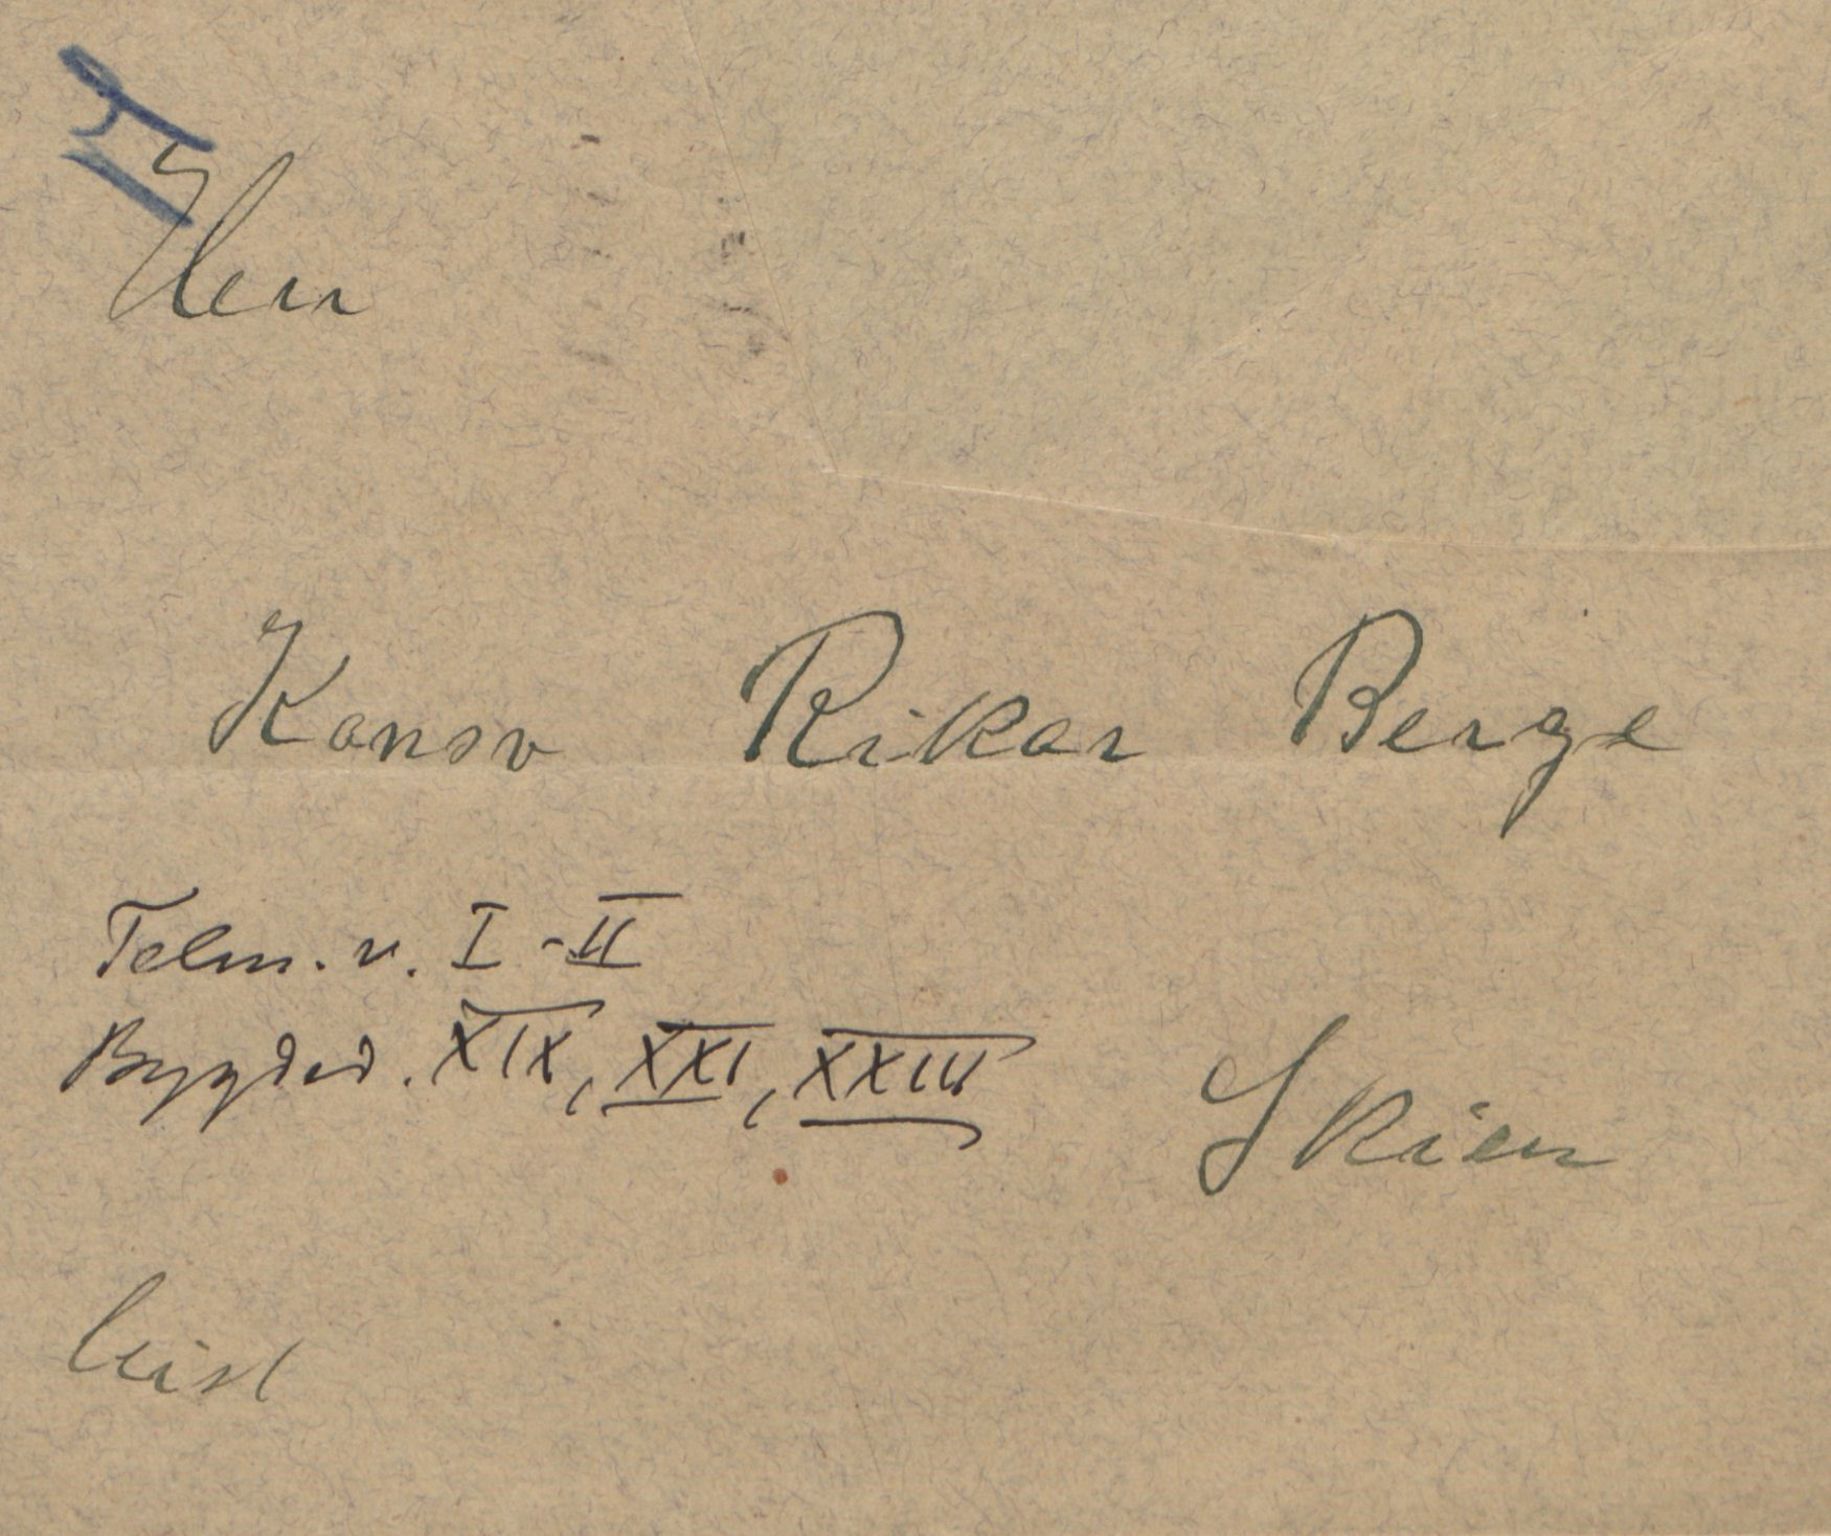 Herr
Konsv Rikar Berge
Telem. v. I - II
Bygded. XIX, XXI, XXIII
Skien